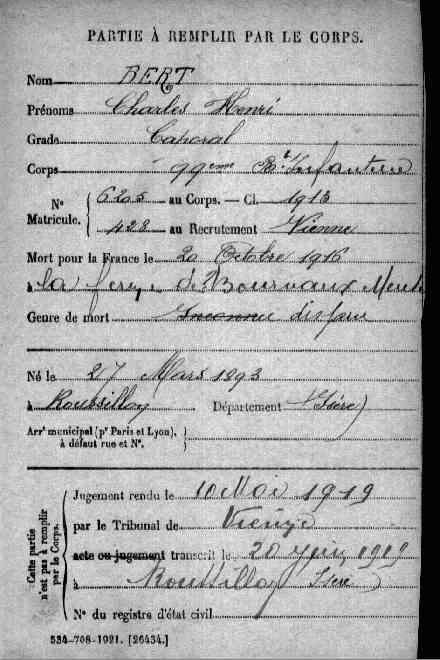 PARTIE À REMPLIR PAR LE CORPS.
Nom BERT
Prénoms Charles Henri
Grade Caporal
Corps 99eme Rt Infanterie
N° Matricule. 6205 au Corps. — Cl. 1913
428 au Recrutement Vienne
Mort pour la France le 20 Octobre 1916
à la ferme de Bourvaux Meuse
Genre de mort Inconnu disparu
Né le 27 Mars 1893
à Roussillon Département Isère)
Arrt municipal (pr Paris et Lyon),
à défaut rue et N°.
Cette partie n'est pas à remplir par le Corps.
Jugement rendu le 10 Mai 1919
par le Tribunal de Vienne
acte ou jugement transcrit le 20 juin 1919
à Roussillon Isère)
N° du registre d'état civil
534-708-1921. [26434.]